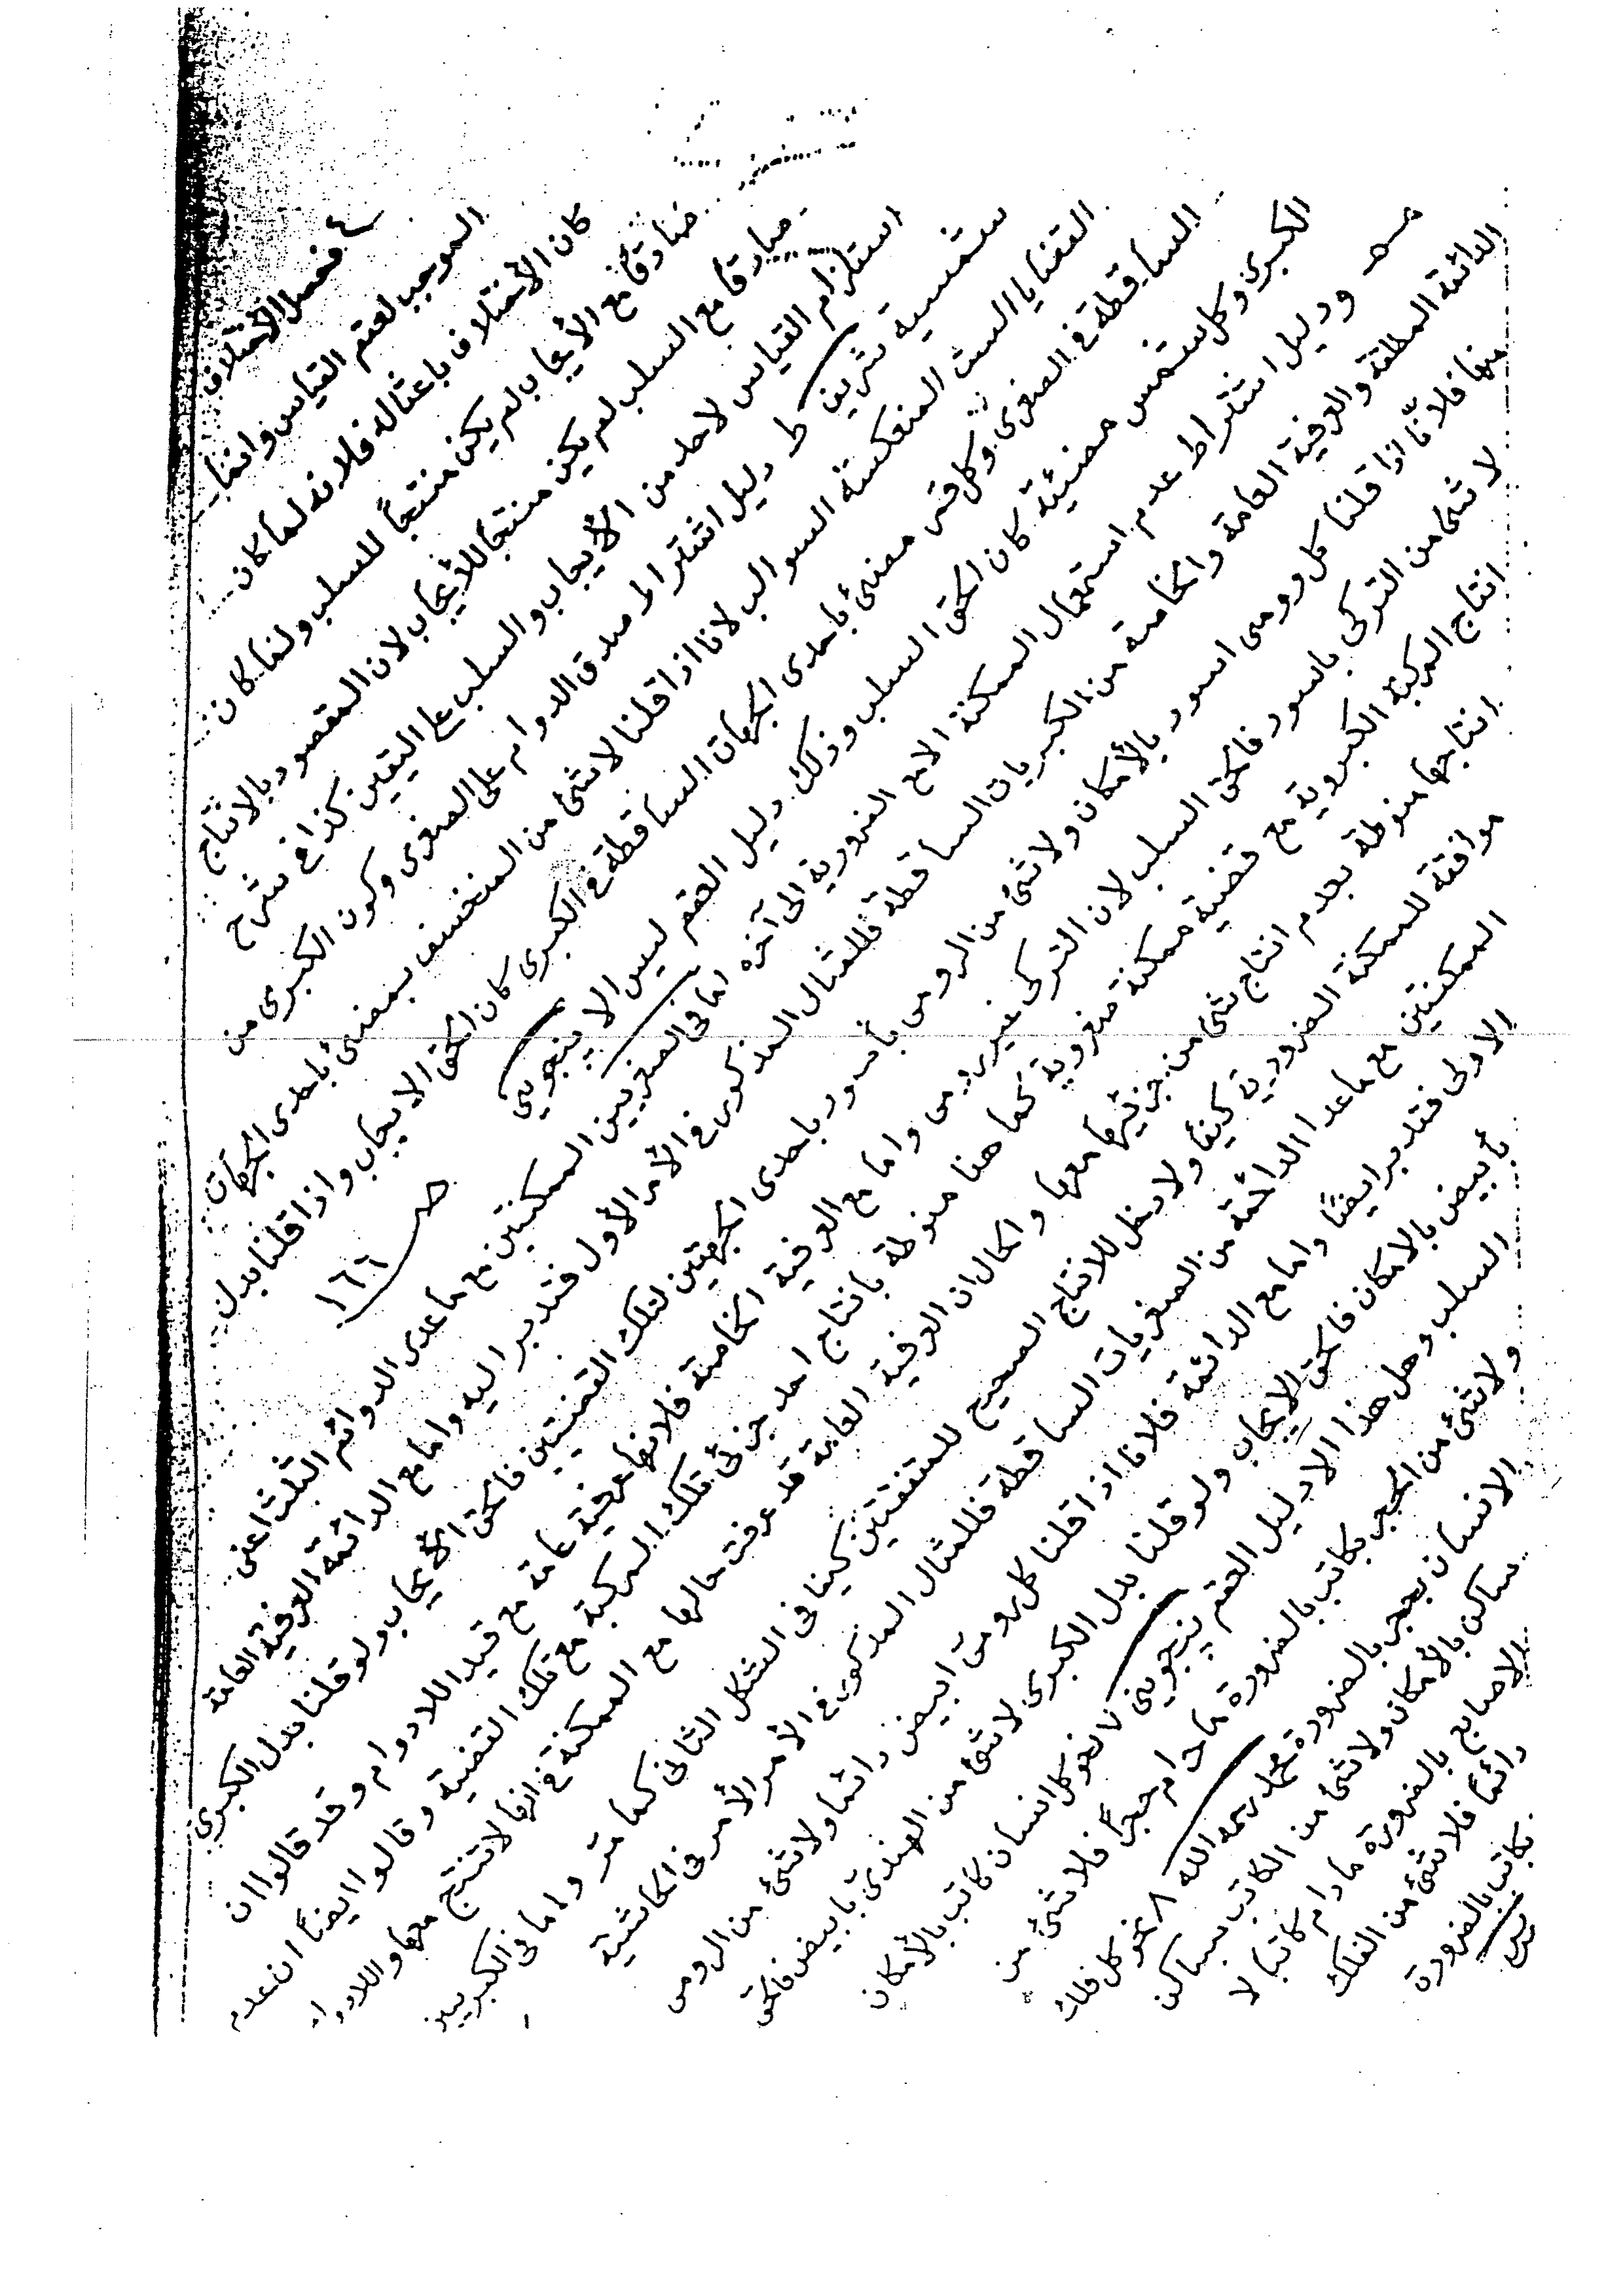 ٤ فحصل الاختلاف
الموجب لعقم القياس وانما
كان الأختلاف باعثاله فلانه لما كان
صادقا مع الأيجاب لم يكن منتجاً للسلب ولما كان
صادقا مع السلب لم يكن منتجا للأيجاب لان المقصود بالانتاج
استلزام القياس لاحد من الأيجاب والسلب على اليقين كذا في شرح
شمسية شريف ط دليل اشتراط صدق الدوام على الصغرى وكون الكبرى من
القضايا الست المنعكسة السوالب لانا اذا قلنا لا شئ من المنخسف بمضئ باحدى الجهات
الساقطة في الصغرى وكل قمر مضئ باحدى الجهات الساقطة في الكبرى كان الحق الايجاب واذا قلنا بدل
الكبرى وكل شمس مضيئة كان الحق السلب وذلك دليل العقم ليس الا پنجويني
ص ١٦٦
ودليل اشتراط عدم استعمال الممكنة الا مع الضرورية الى آخره اما في الصغريين الممكنتين مع ما عدى الدوائم الثلث اعنى
الدائمة المطلقة والعرفية العامة والخاصة من الكبريات الساقطة فللمثال المذكور في الأمر الأول فتدبر اليه واما مع الدائمة العرفية العامة
منها فلأنا اذا قلنا كل رومى اسود بالأمكان ولا شئ من الرومى بأسود باحدى الجهتين لتلك القضيتين فالحق الأيجاب ولو قلنا بدل الكبرى
لا شئ من التركى باسود فالحق السلب لان التركى غير رومى واما مع العرفية الخاصة فلانها عرفية عامة مع قيد اللادوام وقد قالوا ان
انتاج المركبة الكبروية مع قضية ممكنة صغروية كما هنا منوطة بانتاج احد جزئى تلك المركبة مع تلك القضية وقالوا ايضاً ان عدم
انتاجها منوطة بعدم انتاج شئ من جزئيها معها والحال ان العرفية العامة قد عرفت حالها مع الممكنة في انها لا تنتج معها واللادوام
موافقة للممكنة الضرورية كيفاً ولا دخل للانتاج الصحيح للمتفقتين كيفا في الشكل الثانى كما مر واما في الكبريين
الممكنتين مع ما عدا الدائمة من الصغريات الساقطة فللمثال المذكور في الأمر الأمر في الحاشية
الاولى فتدبر ايضاً واما مع الدائمة فلانا اذا قلنا كل رومى ابيض دائما ولا شئ من الرومى
بأبيض بالامكان فالحق الايجاب ولو قلنا بدل الكبرى لا شئ من الهندى بابيض فالحق
السلب وهل هذا الا دليل العقم پنجوينى ٧ نحو كل انسان كاتب بالأمكان
ولا شئ من الحجر بكاتب بالضرورة مادام حجراً فلا شئ من
الانسان بحجر بالضرورة محمد رحمه الله ٨ نحو كل فلك
ساكن بالأمكان ولا شئ من الكاتب بساكن
الاصابع بالضرورة ما دام كاتبا لا
دائماً فلا شئ من الفلك
بكاتب بالضرورة